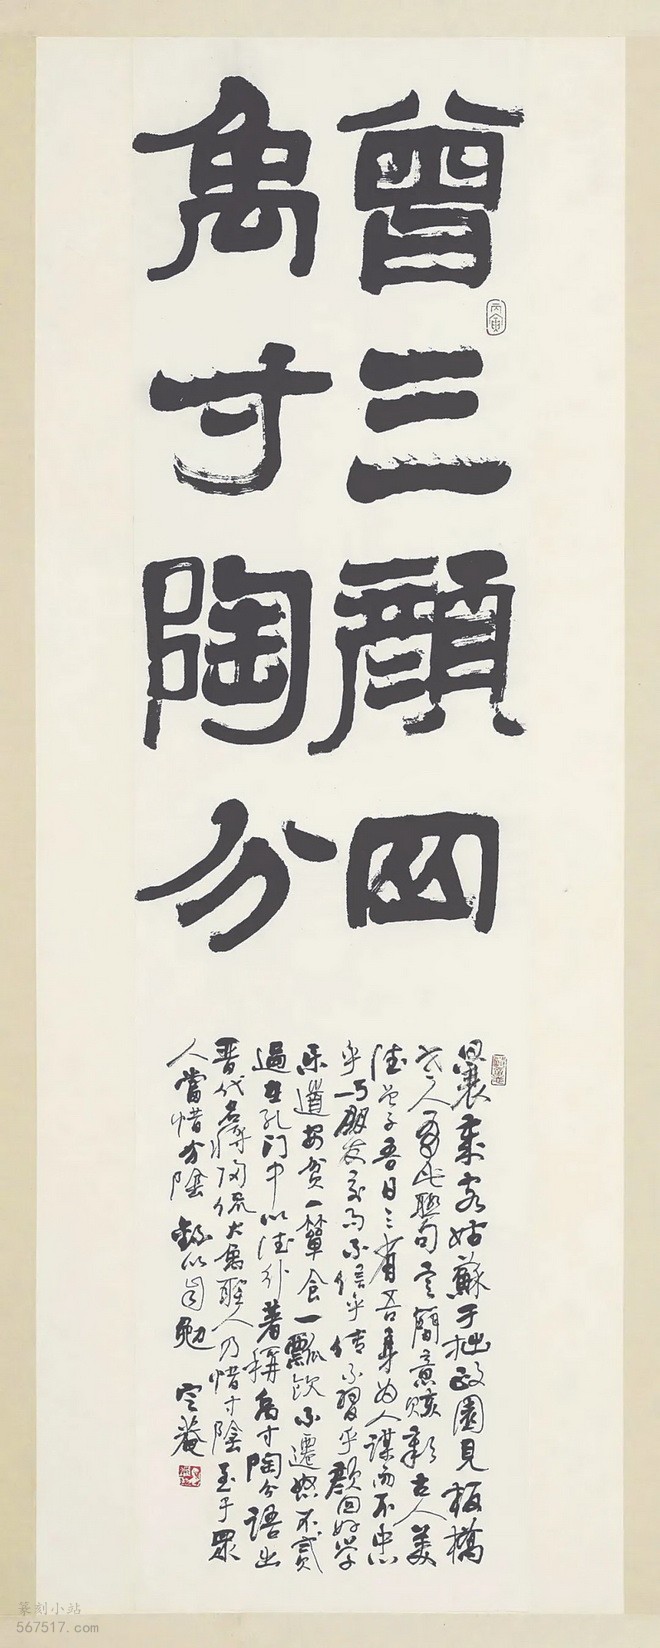 曾三顏四
禹寸陶分
丙寅
曩客姑蘇于拙政園見板橋
人書此聯句言簡意賅彰古人美
德曾子吾日三省吾身为人謀而不忠
乎与朋友交而不信乎傳不習乎顏回好学
樂道安贫一簞食一瓢飲不遷怒不貳
過在孔门中以德行著稱禹寸陶分語出
晋代名將陶侃大禹聖人乃惜寸陰至于眾
人當惜分陰録以自勉 定菴
篆刻小站
567517.com